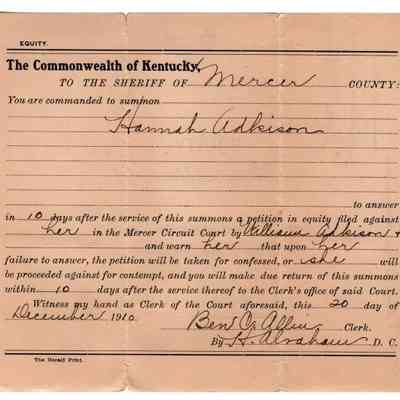 EQUITY.
The Commonwealth of Kentucky,
TO THE SHERIFF OF Mercer COUNTY:
You are commanded to summon
Hannah Adkison
to answer
in 10 days after the service of this summons a petition in equity filed against
her in the Mercer Circuit Court by William Adkison
and warn her that upon her
failure to answer, the petition will be taken for confessed, or she will
be proceeded against for contempt, and you will make due return of this summons
within 10 days after the service thereof to the Clerk's office of said Court.
Witness my hand as Clerk of the Court aforesaid, this 20 day of
December 1910. Ben C. Allin Clerk.
By H. Abraham D. C.
The Herald Print.